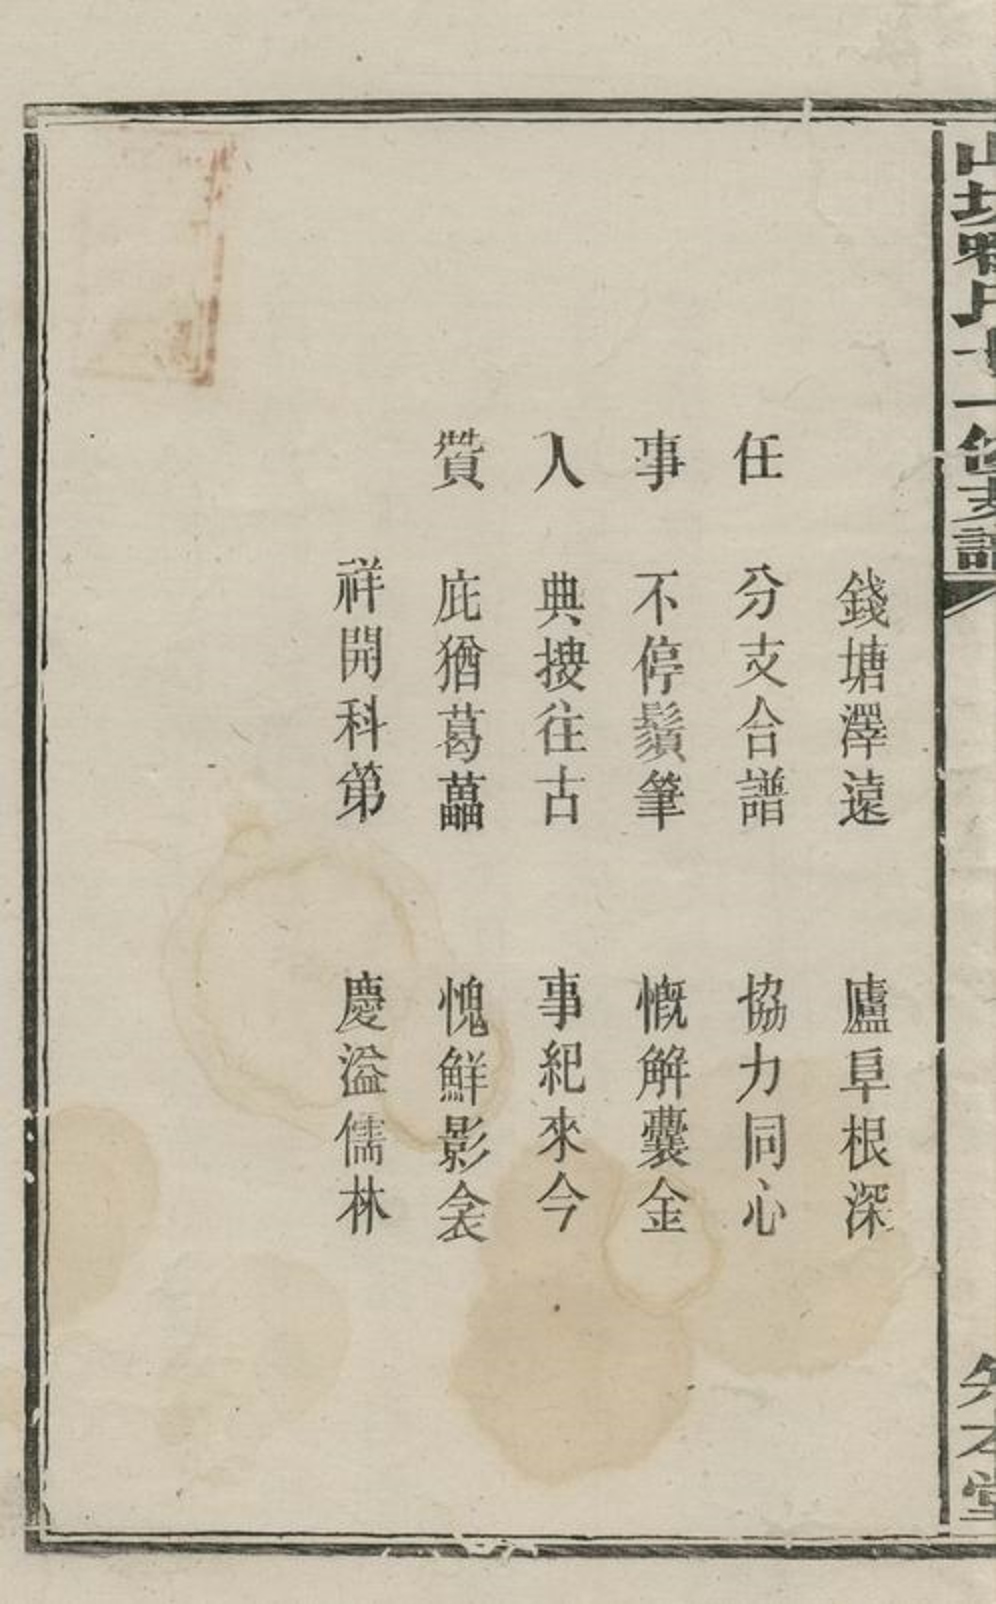 氏
支譜
本堂
錢塘澤遠 廬阜根深
任 分支合譜 協力同心
事 不停鬚筆 慨解囊金
人 典搜往古 事紀來今
贊 庇猶葛藟 愧鮮影衾
祥開科第 慶溢儒林